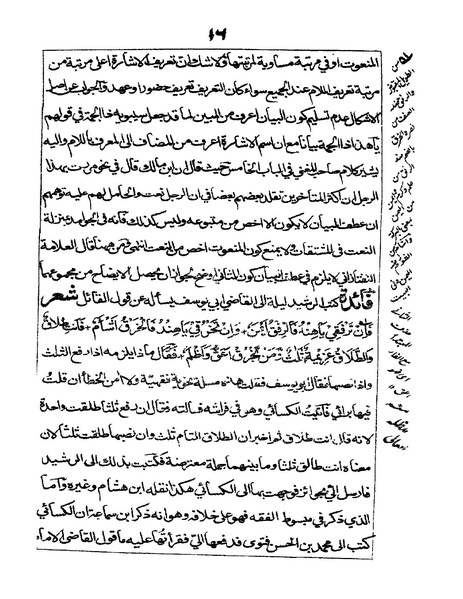 ١٦
المنعوت او في مرتبة مساوية لمرتبتها ولا شك ان تعريف الاشارة اعلى مرتبة من
مرتبة تعريف اللام عند الجميع سواء كان التعريف تعريف حضور او عهد والجواب عن اصل
الاشكال عدم تسليم كون البيان اعرف من المبين لما قد جعل سيبويه ذا الجمة في قولهم
يا هذا ذا الجمة بيانا مع ان اسم الاشارة اعرف من المضاف الى المعرف باللام واليه
يشير كلام صاحب المغني في الباب الخامس حيث قال ان ابن مالك قال في نحو مررت بهذا
الرجل ان اكثر المتأخرين تقلد بعضهم بعضا في ان الرجل نعت والحامل لهم عليه توهمهم
ان عطف البيان لا يكون الا اخص من متبوعه وليس كذلك فانه في الجوامد بمنزلة
النعت في المشتقات ولا يمتنع كون المنعوت اخص من النعت انتهى ومن هنا قال العلامة
التفتازاني لا يلزم في عطف البيان كون الثاني اوضح لجواز ان يحصل الايضاح من مجموعهما
فائدة كتب الرشيد ليلة الى القاضي ابي يوسف يسأله عن قول القائل شعر
فإن ترفقي يا هند فالرفق أيمن وإن تخرقي يا هند فالخرق أشأم فأنت طلاق
والطلاق عزيمة ثلث ومن يخرق اعق وأظلم فقال ما ذا يلزمه اذا رفع الثلث
واذا نصبها فقال ابو يوسف فقلت هذه مسئلة نحوية فقهية ولا امن الخطأ ان قلت
فيها برأيي فأتيت الكسائي وهو في فراشه فسألته فقال ان رفع ثلثا طلقت واحدة
لانه قال انت طلاق ثم اخبر ان الطلاق التام ثلث وان نصبها طلقت ثلثا لان
معناه انت طالق ثلثا وما بينهما جملة معترضة فكتبت بذلك الى الرشيد
فارسل الي بجوائز فوجهت بها الى الكسائي هكذا نقله ابن هشام وغيره واما
الذي ذكر في مبسوط الفقه فهو على خلافه وهو انه ذكر ابن سماعة ان الكسائي
كتب الى محمد بن الحسن فتوى فدفعها الي فقرأتها عليه ما قول القاضي الامام